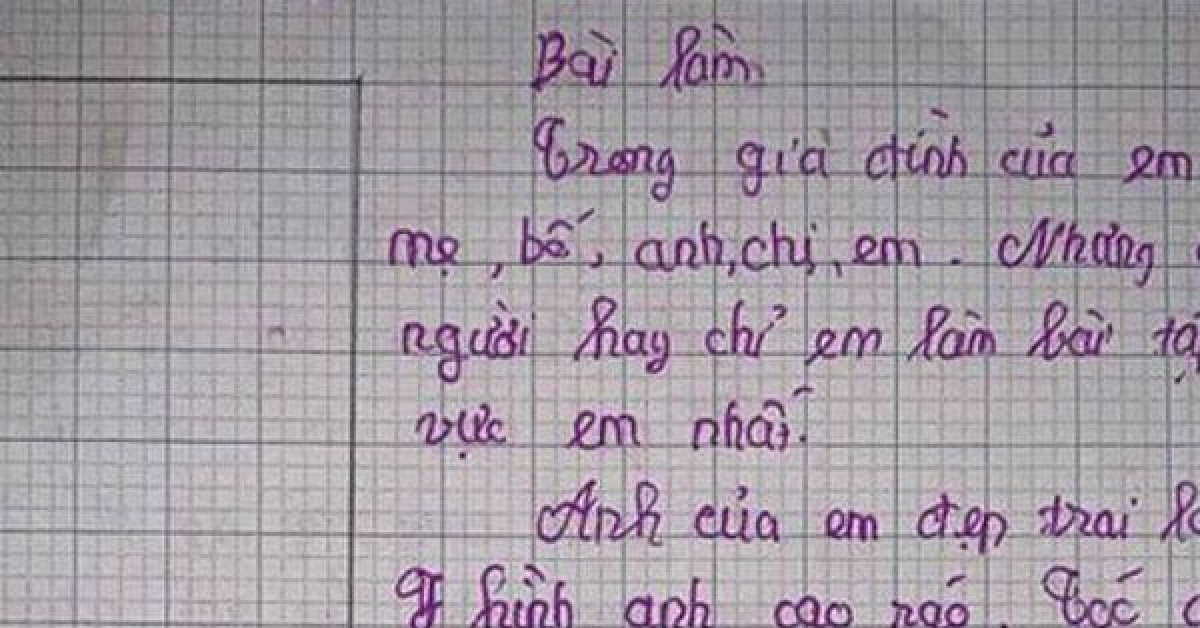 Bài làm
Trong gia đình của em
mẹ, bố, anh, chị, em. Nhưng
người hay chỉ em làm bài
vực em nhất.
Anh của em đẹp trai
hình anh cao ráo. Tóc